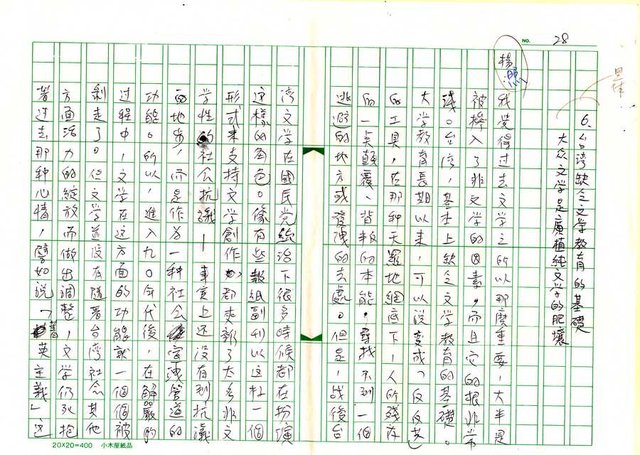 NO. 28
6.台湾缺乏文学教育的基礎
大众文学是廣植純文学的肥壤
楊照
我覺得过去文学之所以那麼重要,大半是
被摻入了非文学的因素,而且它的根非常
淺。台湾,基本上缺乏文学教育的基礎。
大学教育長期以來,可以說变成「反反共」
的工具,在那种天羅地網底下,人的殘存
的一点顛覆、背叛的本能,尋找不到一個
逃避的地方或發洩的去處。但是,战後台
湾文学在國民党統治下很多時候都在扮演
这樣的角色。像有些報紙副刊以这种一個
形式來支持文学創作,都來了大多非文
学性的社会抗議—事实上还没有到抗議
的地步,而是作为一种社会宣洩管道的
功能。所以,進入九〇年代後,在解嚴的
过程中,文学在这方面的功能就一個個被
剝走了。但文学並没有隨著台湾社会其他
方面活力的綻放而做出調整,文学仍死抱
著过去那种心情,譬如說「菁英主義」这
20X20=400 小木屋紙品